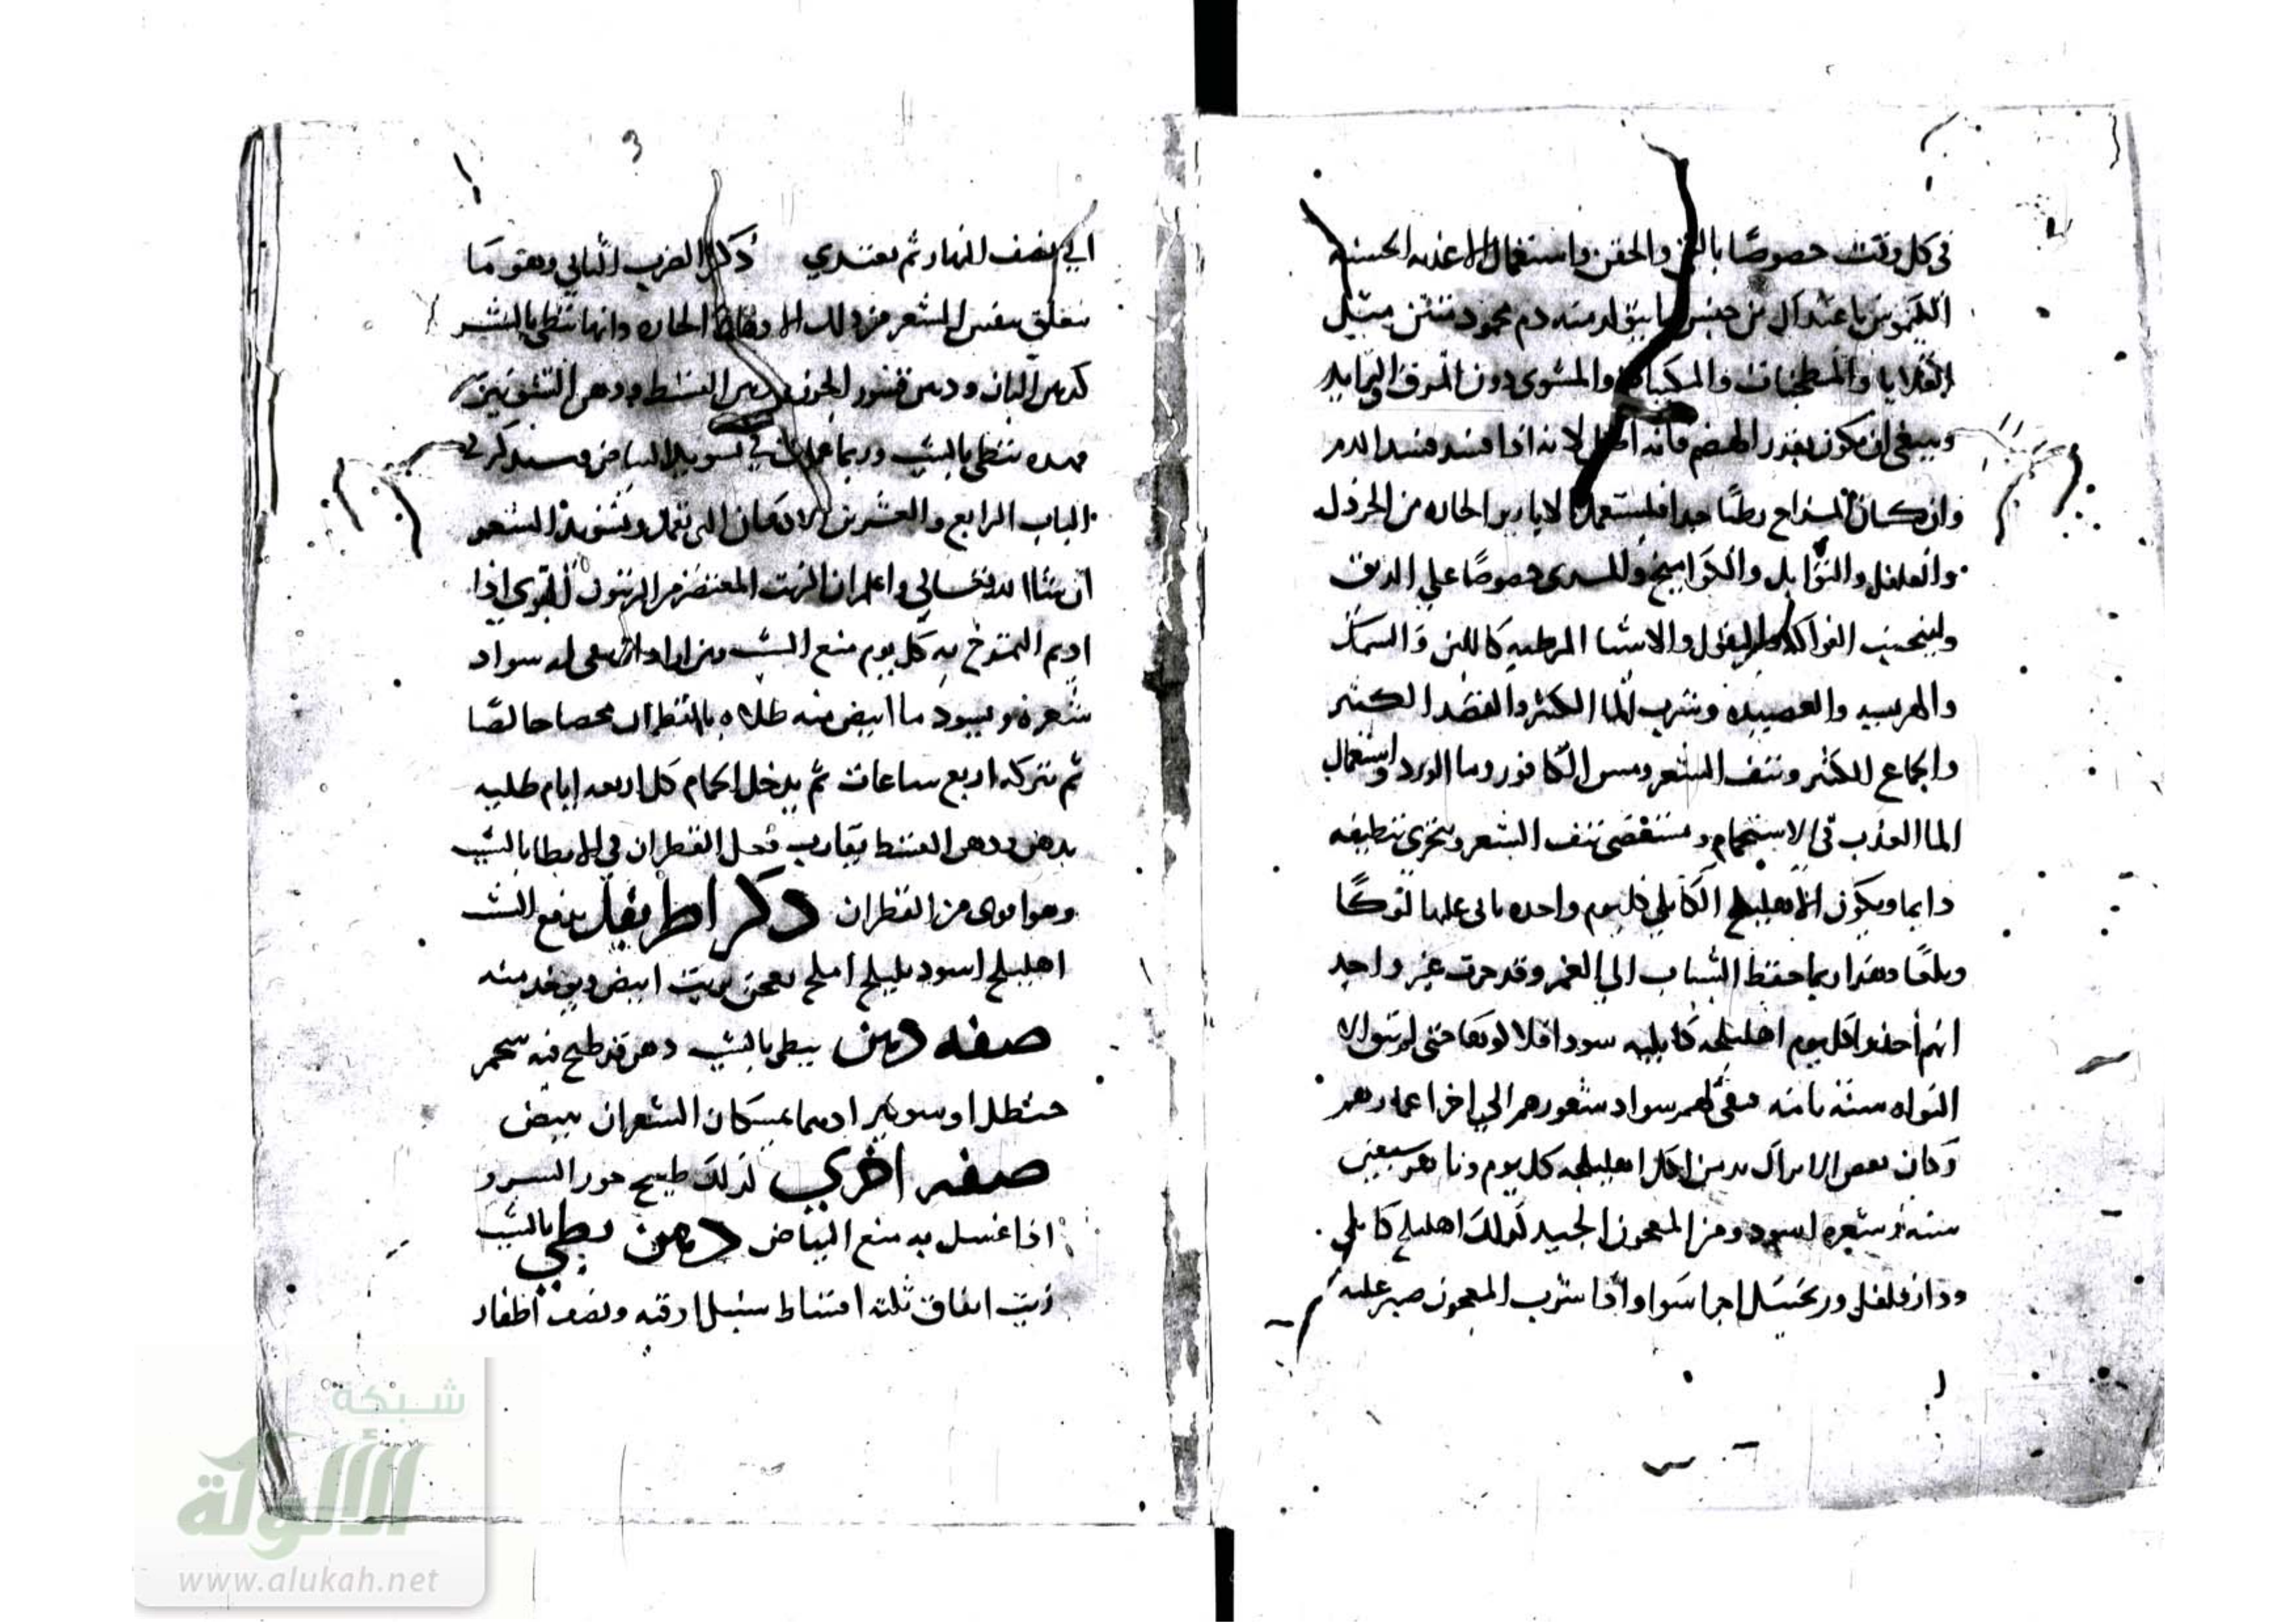 في كل وقت خصوصًا بالقي والحقن واستعمال الاغذيه الحسنه
الكيموس باعتدال من جنس ما يتولد منه دم محمود متين مثل
القلايا والمطجنات والمكببات والمشوي دون المرق والثرايد
وينبغي ان يكون بقدر الهضم فانه افضل لانه اذا فسد فسد الدم
وان كان المزاج رطبًا جدا فليستعمل الابازير الحاره من الخردل
والفلفل والتوابل والكواميخ والمري خصوصًا علي الريق
وليجتنب الفواكه والبقول والاشيا المرطبه كاللبن والسمك
والهريسه والعصيده وشرب الما الكثير والفصد الكثير
والجماع الكثير ونتف الشعر ومس الكافور وما الورد واستعمال
الما العذب في الاستحمام و نتف الشعر وتحري تنظيفه
دايما ويكون الاهليلج الكابلي كل يوم واحده ياتي عليها لوكًا
وبلعًا وهذا ربما حفظ الشباب الي العمر وقد جرب غير واحد
انهم أخذوا كل يوم اهليلجه كابليه سودا فلا لوكها حتى لم تبق الا
النواه سنة تامه فبقي لهم سواد شعورهم الي اخر اعمارهم
وكان بعض الاتراك يدمن اكل اهليلجه كل يوم وناهز سبعين
سنه وشعره اسود ومن المعجون الجيد لذلك اهليلج كابلي
ودار فلفل وزنجبيل اجزا سوا واذا شرب المعجون صبر عليه
الي نصف النهار ثم يغتدي ذكر الضرب الثاني وهو ما
يتعلق بنفس الشعر من ذلك الادهان الحاره وانها تبطي بالشيب
كدهن البان ودهن قشور الجوز ودهن القسط ودهن الشونيز
فهذه تبطي بالشيب وربما في تسويد البياض وسنذكر في
الباب الرابع والعشرين الادهان التي تعمل وتسود الشعر
ان شا الله تعالي واعلم ان الزيت المعتصر من الزيتون البري اذا
اديم التمرخ به كل يوم منع الشيب ومن اراد ان يبقي له سواد
شعره ويسود ما ابيض منه طلاه بالقطران محضا خالصًا
ثم تتركه اربع ساعات ثم يدخل الحمام كل اربعه ايام طليه
بدهن ودهن القسط يقارب فعل القطران في الابطا بالشيب
وهو اقوى من القطران ذكر اطريفل يدفع الشيب
اهليلج اسود بليلج املج يعجن بزيت ابيض ويوخذ منه
صفه دهن يبطي بالشيب دهن قد طبخ فيه شحم
حنظل او ادهما يمسكان الشعر ان يبيض
صفه اخري لذلك طبيخ جوز السرو
اذا غسل به منع البياض دهن يبطي بالشيب
زيت انفاق ثلثه اقساط سنبل اوقيه ونصف اظفار
شبكة
الألوكة
www.alukah.net